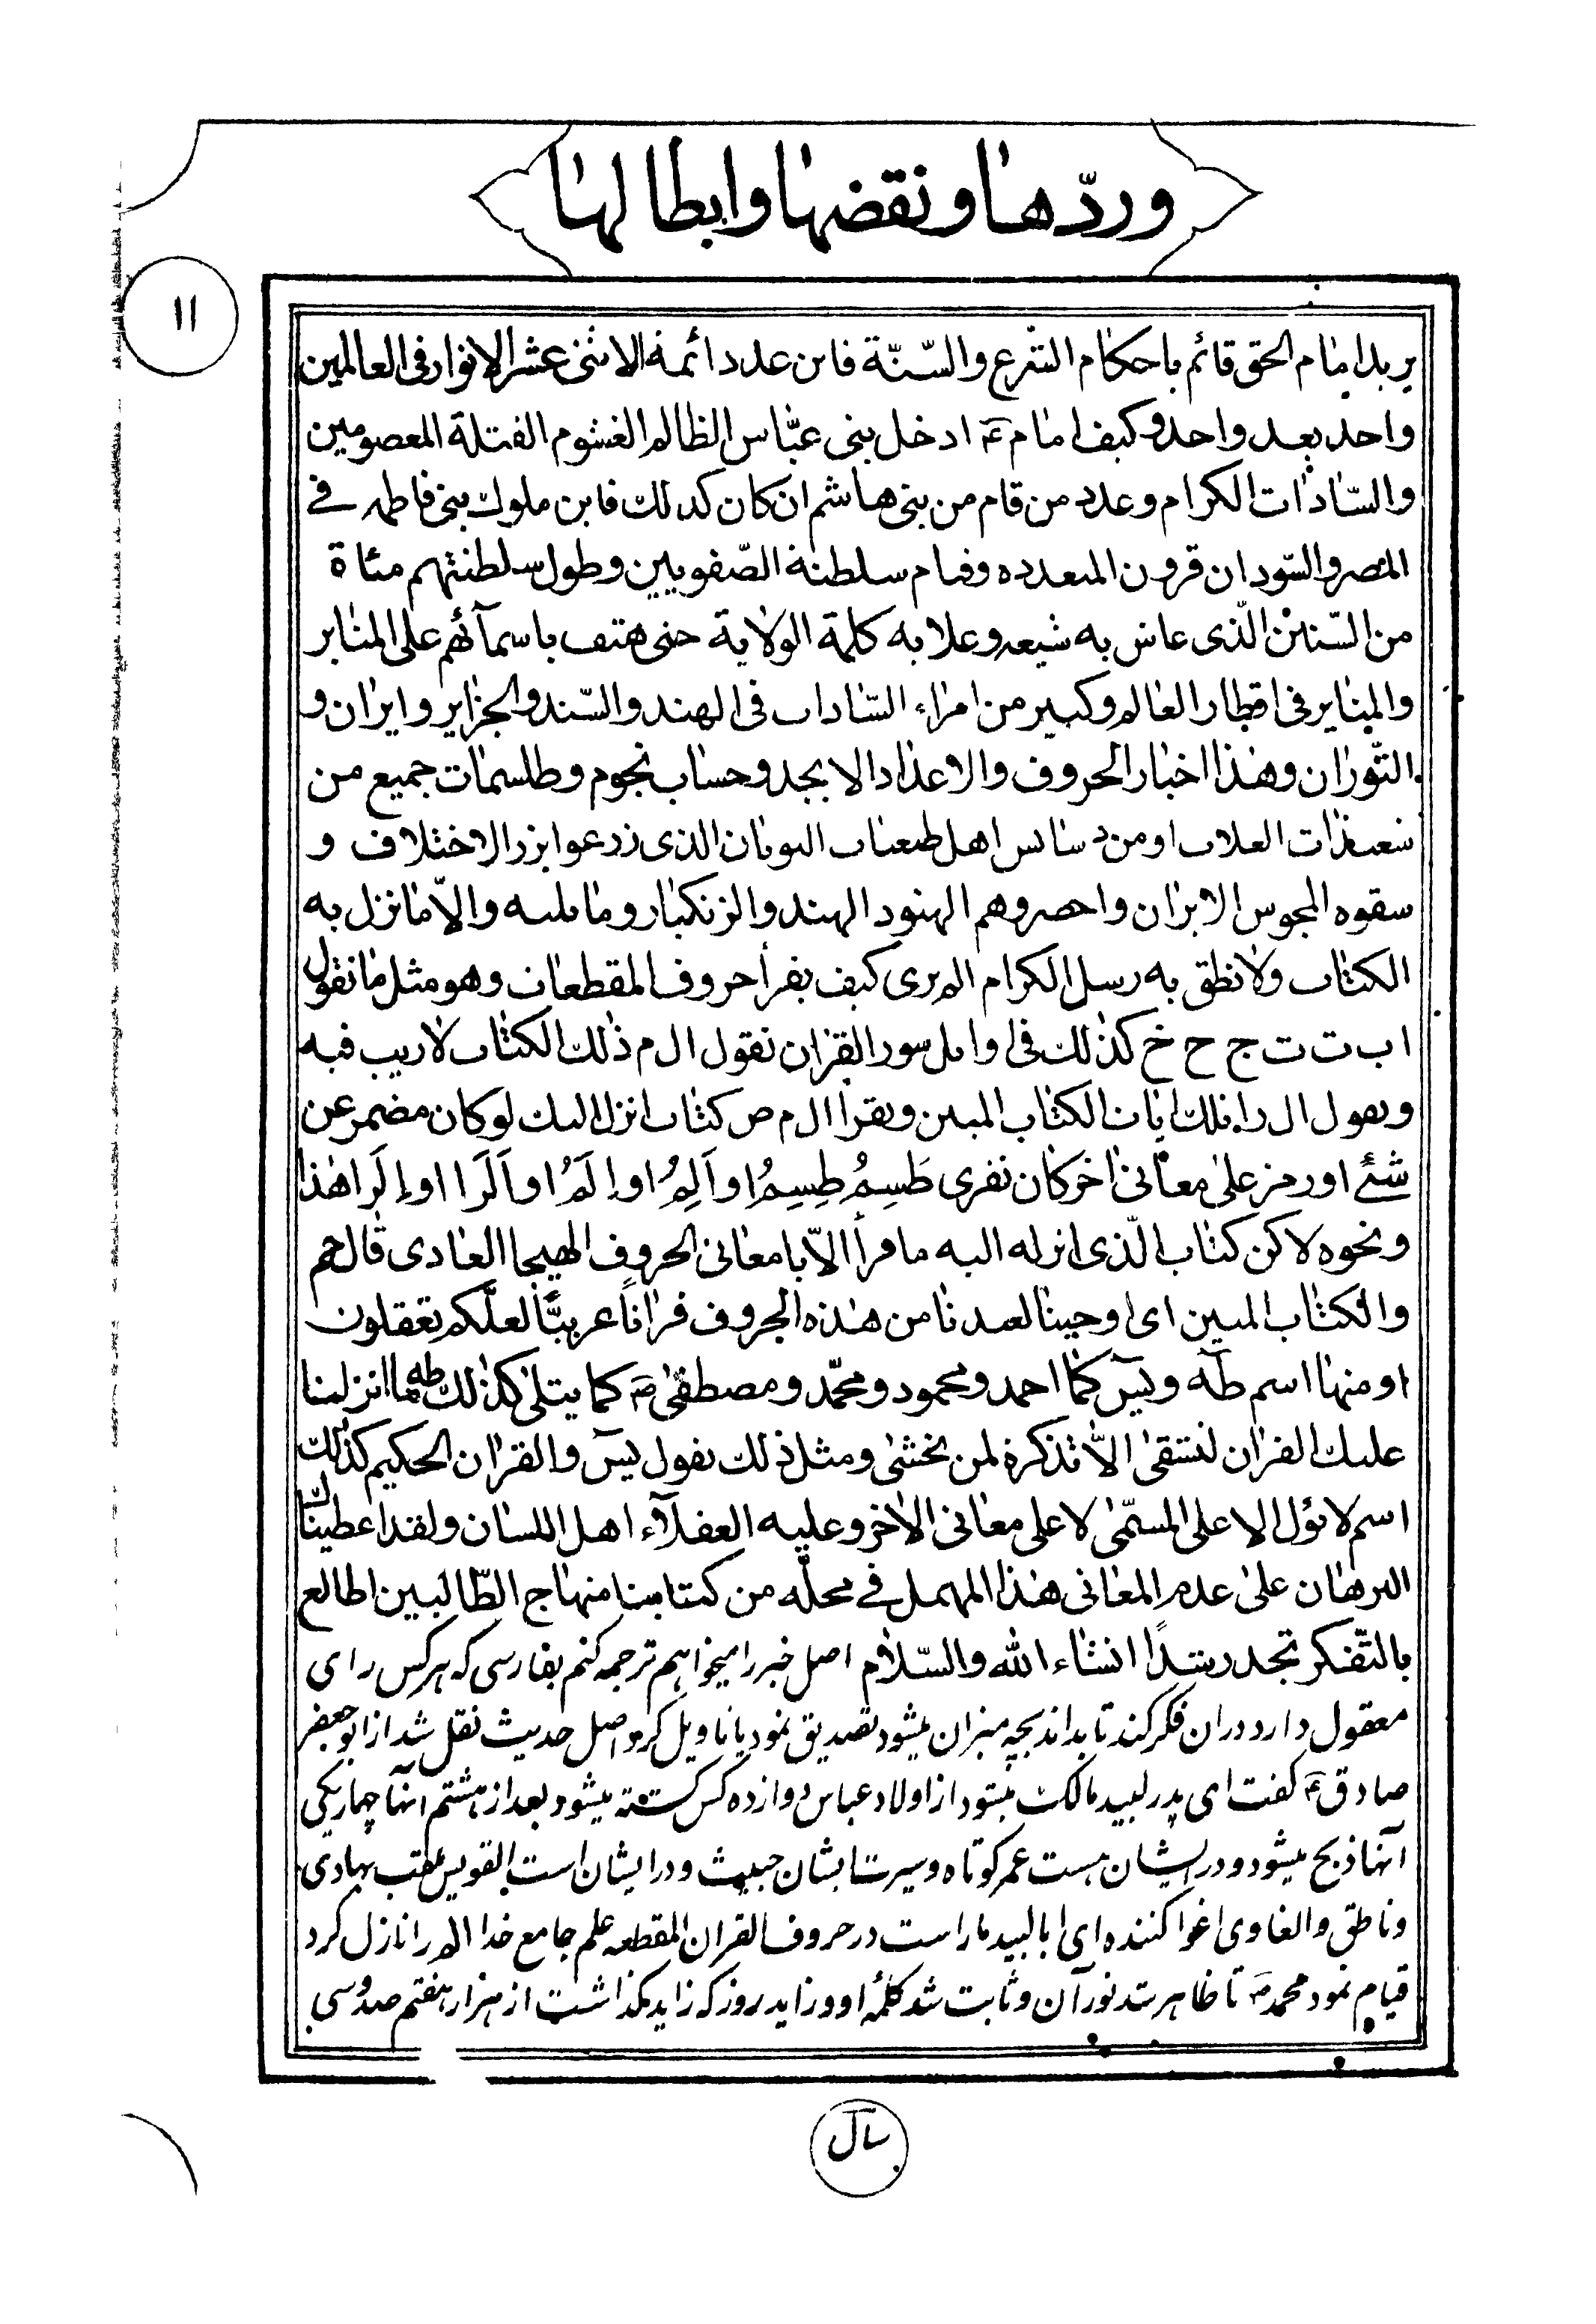 وردّها ونقضها وابطالها
۱۱
یرید امام الحق قائم باحکام الشرع والسّنّة فاین عدد ائمة الاثنی عشر الانوار فی العالمین
واحد بعد واحد وکیف امام ع ادخل بنی عبّاس الظالم الغشوم القتلة المعصومین
والسّادات الکرام وعدد من قام من بنی هاشم ان کان کذلك فاین ملوك بنی فاطمه فی
المصر والسّودان قرون المتعدده وقیام سلطنة الصّفویین وطول سلطنتهم مئاة
من السّنین الّذی عاش به شیعه وعلا به کلمة الولایة حتی هتف باسمآئهم علی المنابر
والمنایر فی اقطار العالم وکثیر من امراء السّادات فی الهند والسّند والجزایر وایران و
التّوران وهذا اخبار الحروف والاعداد الابجد وحساب نجوم وطلسمات جمیع من
الغلات او من دسائس اهل الیونان الذی زرعوا بزر الاختلاف و
سقوه المجوس الایران واحصروهم الهنود الهند والزنکبار والاّ ما نزل به
الکتاب ولا نطق به رسل الکرام الم یری کیف یقرأ حروف المقطعات وهو مثل ما نقول
ا ب ت ث ج ح خ کذلك فی اوایل سور القران نقول ال م ذلك الکتاب لا ریب فیه
ویقول ال را تلك ایات الکتاب المبین ویقرأ ال م ص کتاب انزل الیك لو کان مضمر عن
شئ او رمز علی معانی اخر کان نقری طَسِمُ طِسِمُ او اَلِمُ او اِلَمُ او اَلَرا او اِلَرا هذا
ونحوه لاکن کتاب الّذی انزله الیه ما قرأ الاّ بامعانی الحروف الهیجا العادی قال حم
والکتاب المبین ای اوحینا لعبدنا من هذه الحروف قراناً عربیّاً لعلّکم تعقلون
او منها اسم طه ویس کما احمد ومحمود ومحمّد ومصطفی ص کما یتلی کذلك طه ما انزلنا
علیك القران لتشقی الاّ تذکرة لمن یخشی ومثل ذلك یقول یس والقران الحکیم کذلك
اسم لا یؤل الا علی المسمّی لا علی معانی الاخر وعلیه العقلآء اهل اللسان ولقد اعطیناك
البرهان علی عدم المعانی هذا المهمل فی محلّه من کتابنا منهاج الطّالبین اطالع
بالتّفکر تجد رشداً انشاء الله والسّلام اصل خبر را میخواهم ترجمه کنم بفارسی که هر کس رای
معقول دارد دران فکر کند تا بداند بچه میزان میشود تصدیق نمود یا تاویل کرد اصل حدیث نقل شد از ابو جعفر
صادق ع گفت ای پدر لبید مالک میشود از اولاد عباس دوازده کس کشته میشود بعد از هشتم آنها چهار یکی
آنها ذبح میشود و در ایشان هست عمر کوتاه وسیرت ایشان خبیث و در ایشان است الفویسق ملقب بهادی
وناطق والغاوی اغوا کننده ای ابا لبید ما راست در حروف القران المقطعه علم جامع خدا الم را نازل کرد
قیام نمود محمد ص تا ظاهر شد نور آن وثابت شد کلمهٔ او وزایید روز که زایید گذاشت از هزار هفتم صد وسی
سال